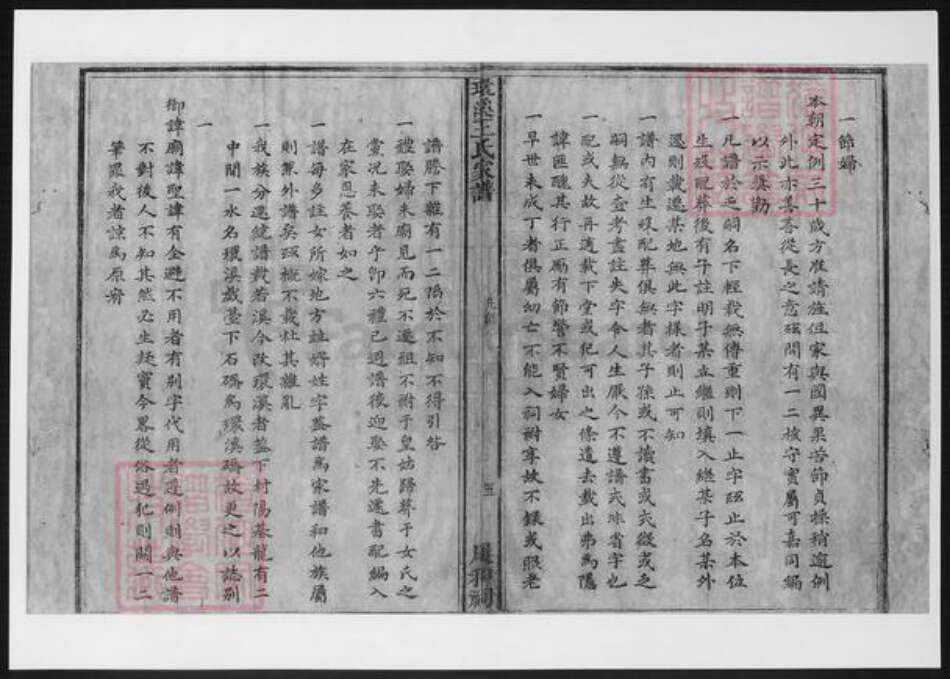 一節婦
本朝定例三十歲方准請旌但家與國異果苦節貞操稍逾例
外此亦善善從長之意強間有一二核守實屬可嘉同編
以示獎勸
一凡譜於乏嗣名下輕載無傳重則下一止字强止於本位
生歿配葬後有子註明子某立繼則填入繼某子名某外
遷則載遷某地無此字樣者則止可知
一譜內有生歿配葬俱無者其子孫或不讀書或式微或之
嗣無從查考盡註失字令人生厭今不遵譜式非省字也
一配或夫故再適載下堂或犯可出之條遣去載出弗為隱
諱匪醜其行正勵有節鑒不賢婦女
一早世未成丁者俱屬幼亡不能入祠祔享故不錄或服老
環溪王氏家譜
凡例
五
譜牒下雖有一二隔於不知不得引咎
一禮娶婦未廟見而死不遷祖不祔于皇姑歸葬于女氏之
黨况未娶者乎即六禮已週譜後迎娶不先濫書配編入
在家恩養者如之
一譜每多註女所嫁地方姓婿姓字蓋譜為家譜和他族屬
則兼外譜矣强概不載杜其雜亂
一我族分遷統譜載若溪今改環溪者蓋下村陽基龍有二
中間一水名環溪戲臺下石磡為環溪磡故更之以誌別
一
御諱廟諱聖諱有全避不用者有別字代用者遵例則與他譜
不對後人不知其然必生疑竇今畧從俗遇犯則闕一二
筆罪我者諒為原宥